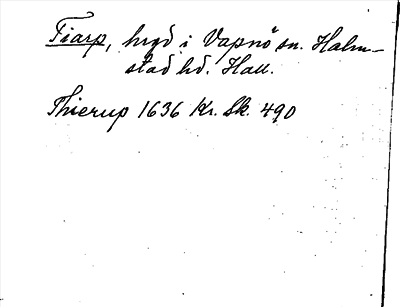 Fiarp, hvd i Vapnö sn. Halm-
stad hd. Hall.
Thierup 1636 Kr. Sk. 490